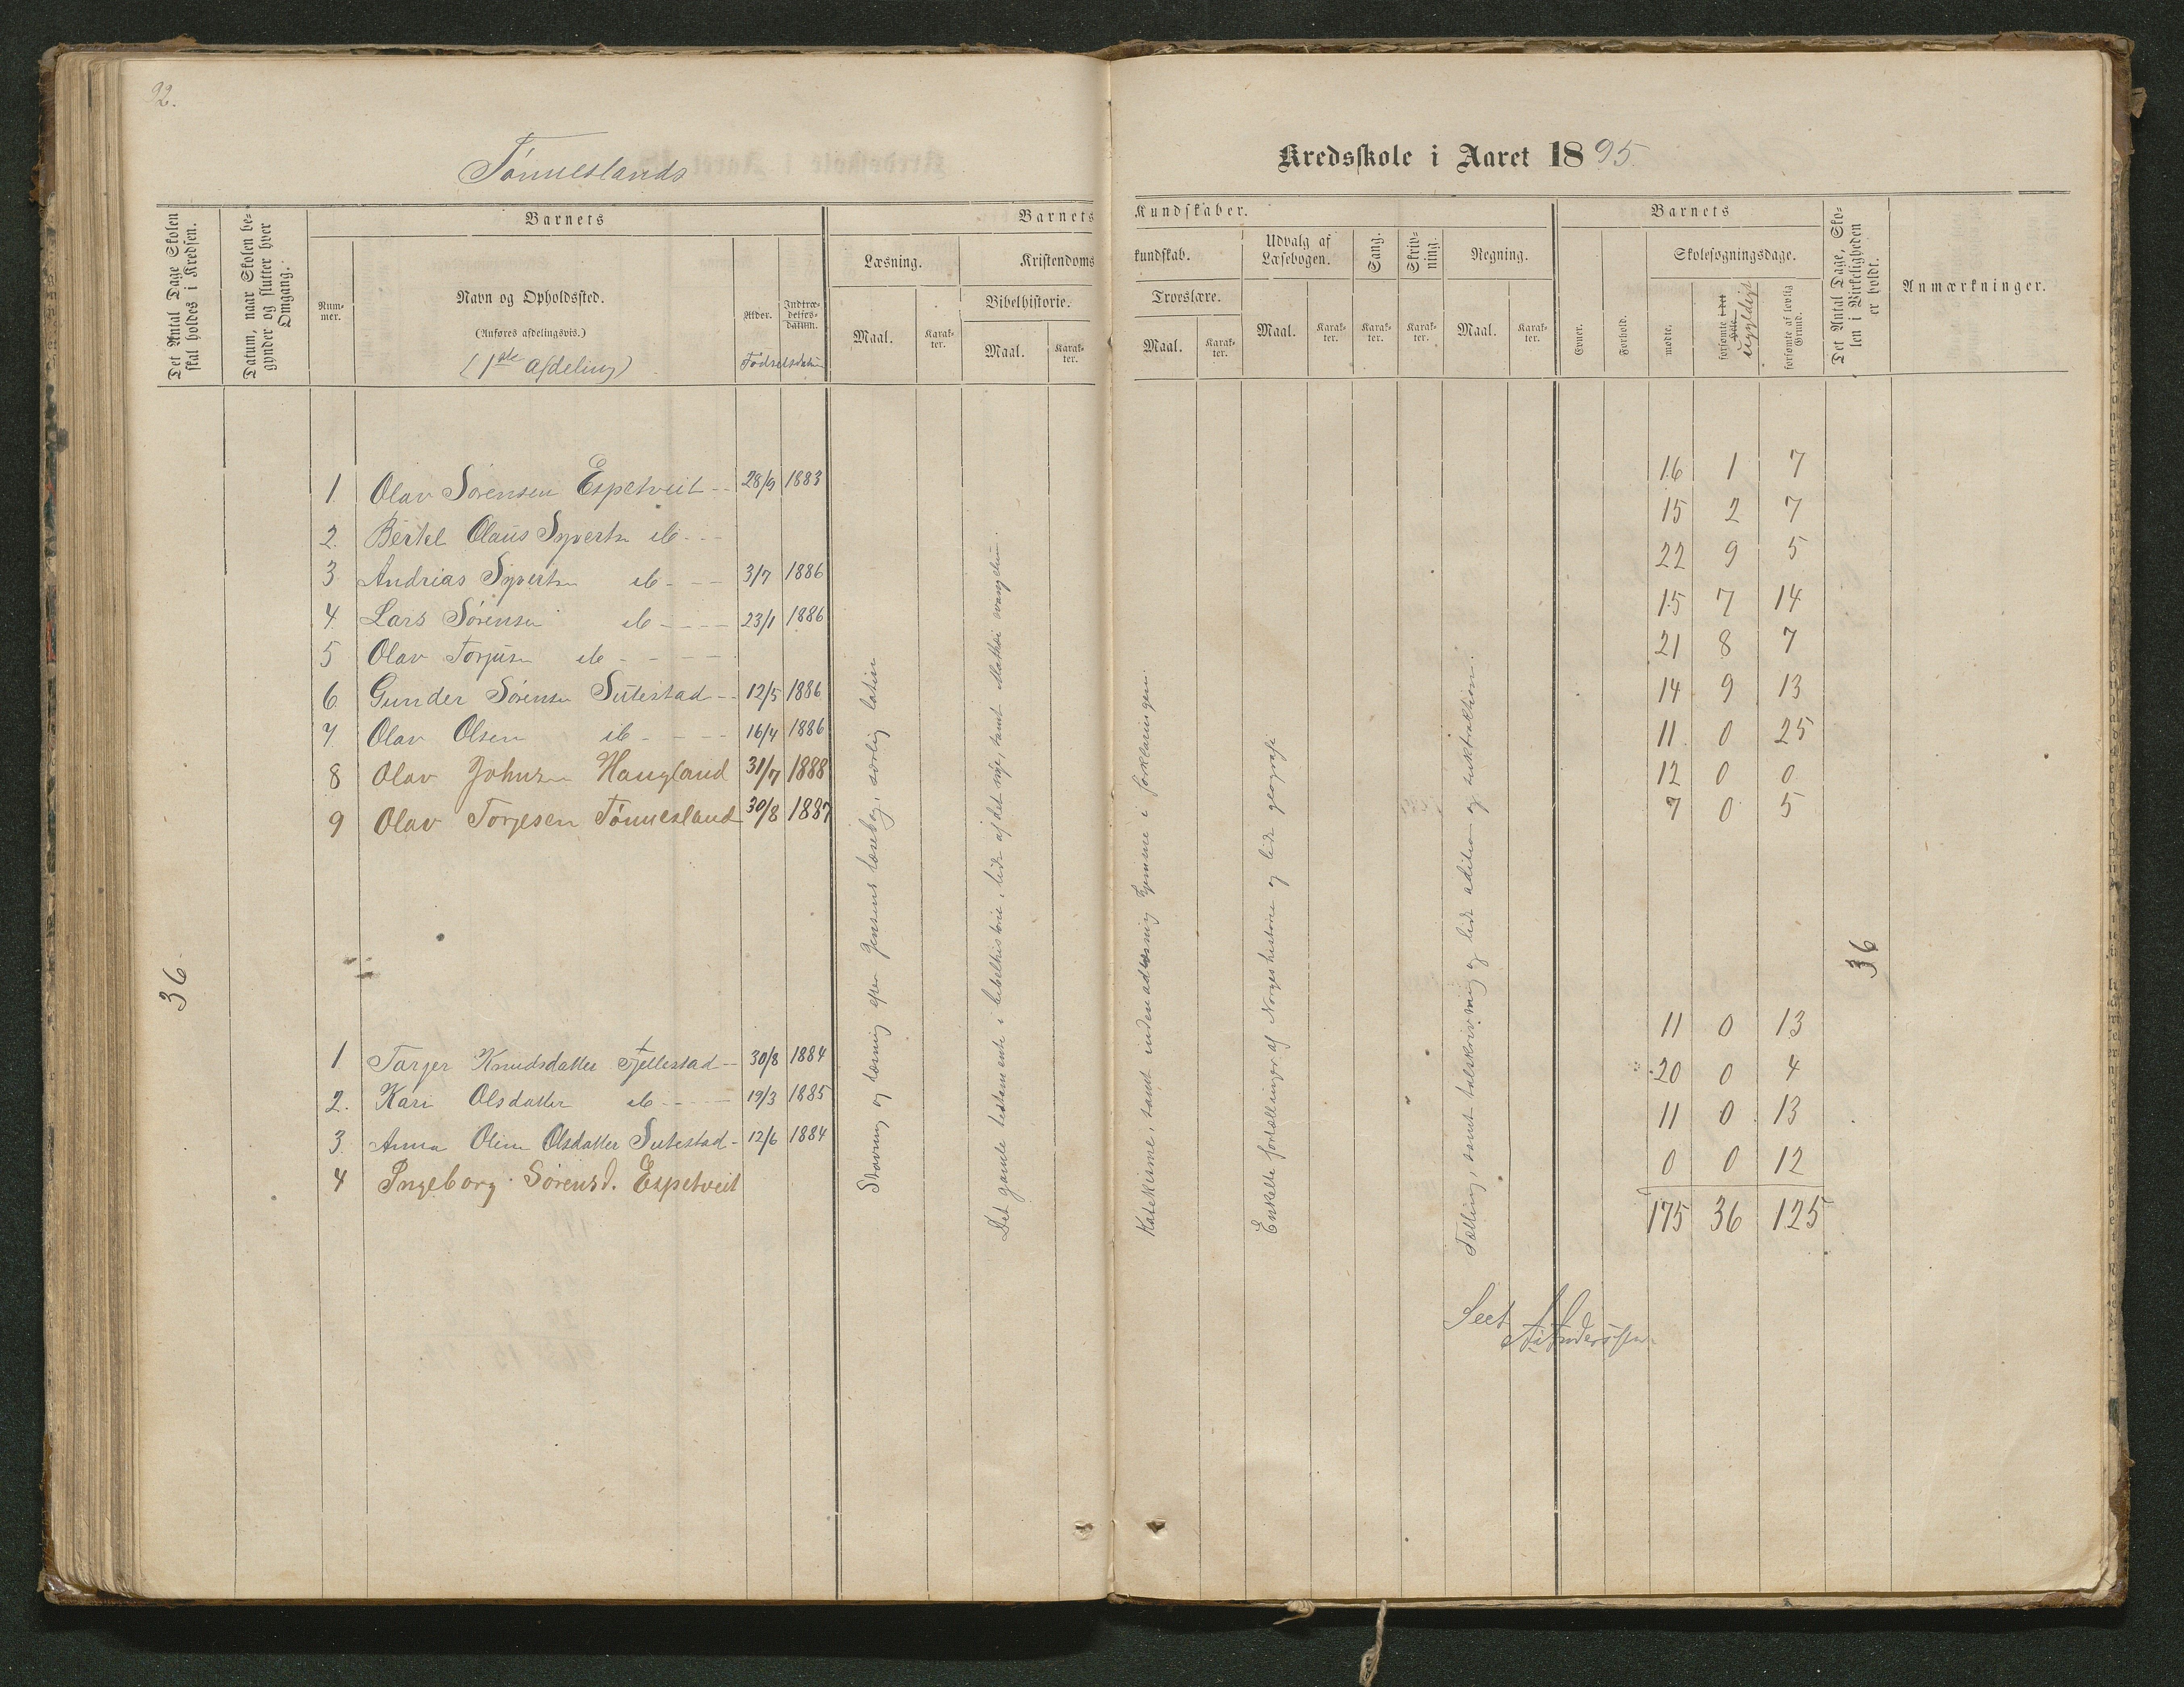 92.
Tønneslands
Kredsskole i Aaret 1895.
Det Antal Dage Skolen skal holdes i Kredsen.
Datum, naar Skolen begynder og slutter hver Omgang.
Barnets
Nummer.
Navn og Opholdssted.
(Anføres afdelingsvis.)
(1ste afdeling)
Alder.
Indtrædelsesdatum.
Fødselsdatum
Barnets Kundskaber.
Læsning.
Maal.
Karakter.
Kristendomskundskab.
Bibelhistorie.
Maal.
Karakter.
Troeslære.
Maal.
Karakter.
Udvalg af Læsebogen.
Maal.
Karakter.
Sang.
Karakter.
Skrivning.
Karakter.
Regning.
Maal.
Karakter.
Barnets
Evner.
Forhold.
Skolesøgningsdage.
mødte.
forsømte i det Hele.
ugyldigt
forsømte af lovlig Grund.
Det Antal Dage, Skolen i Virkeligheden er holdt.
Anmærkninger.
36
1 Olav Sørensen Espetveit 28/9 1883 16 1 7
2. Bertel Olaus Syverts. ib 15 2 7
3 Andrias Syverts. ib 3/7 1886 22 9 5
4. Lars Sørensen ib 23/1 1886 15 7 14
5 Olav Torjusn ib 21 8 7
6 Gunder Sørensn Sutestad 12/5 1886 14 9 13
7 Olav Olsen ib 16/4 1886 11 0 25
8 Olav Johnsen Haugland 31/7 1888 12 0 0
9 Olav Torjesen Tønnesland 30/8 1887 7 0 5
1 Tarjer Knudsdatter Fjellestad 30/8 1884 11 0 13
2. Kari Olsdatter ib 19/3 1885 20 0 4
3. Anna Oline Olsdatter Sutestad 12/6 1884 11 0 13
4 Ingeborg Sørensd. Espetveit 0 0 12
175 36 125
Stavning og læsning efter Jensens læsebog, særlig latin
Det gamle testamente i bibelhistorie, lidt af det nye, samt Mathæi evangelium.
Katekisme, samt indenadlæsning hjemme i forklaringen.
Enkelte fortællinger af Norgeshistorie og lidt geografi
Tælling, samt talskrivning og lidt adition og subtraktion.
36
Seet
A. Anderssen